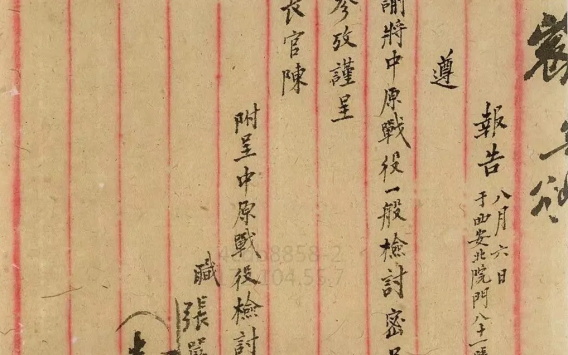 報告 八月六日
于西安北院門八十一號
遵
諭將中原戰役一般檢討密呈
參攷謹呈
長官陳
附呈中原戰役檢討
職 張